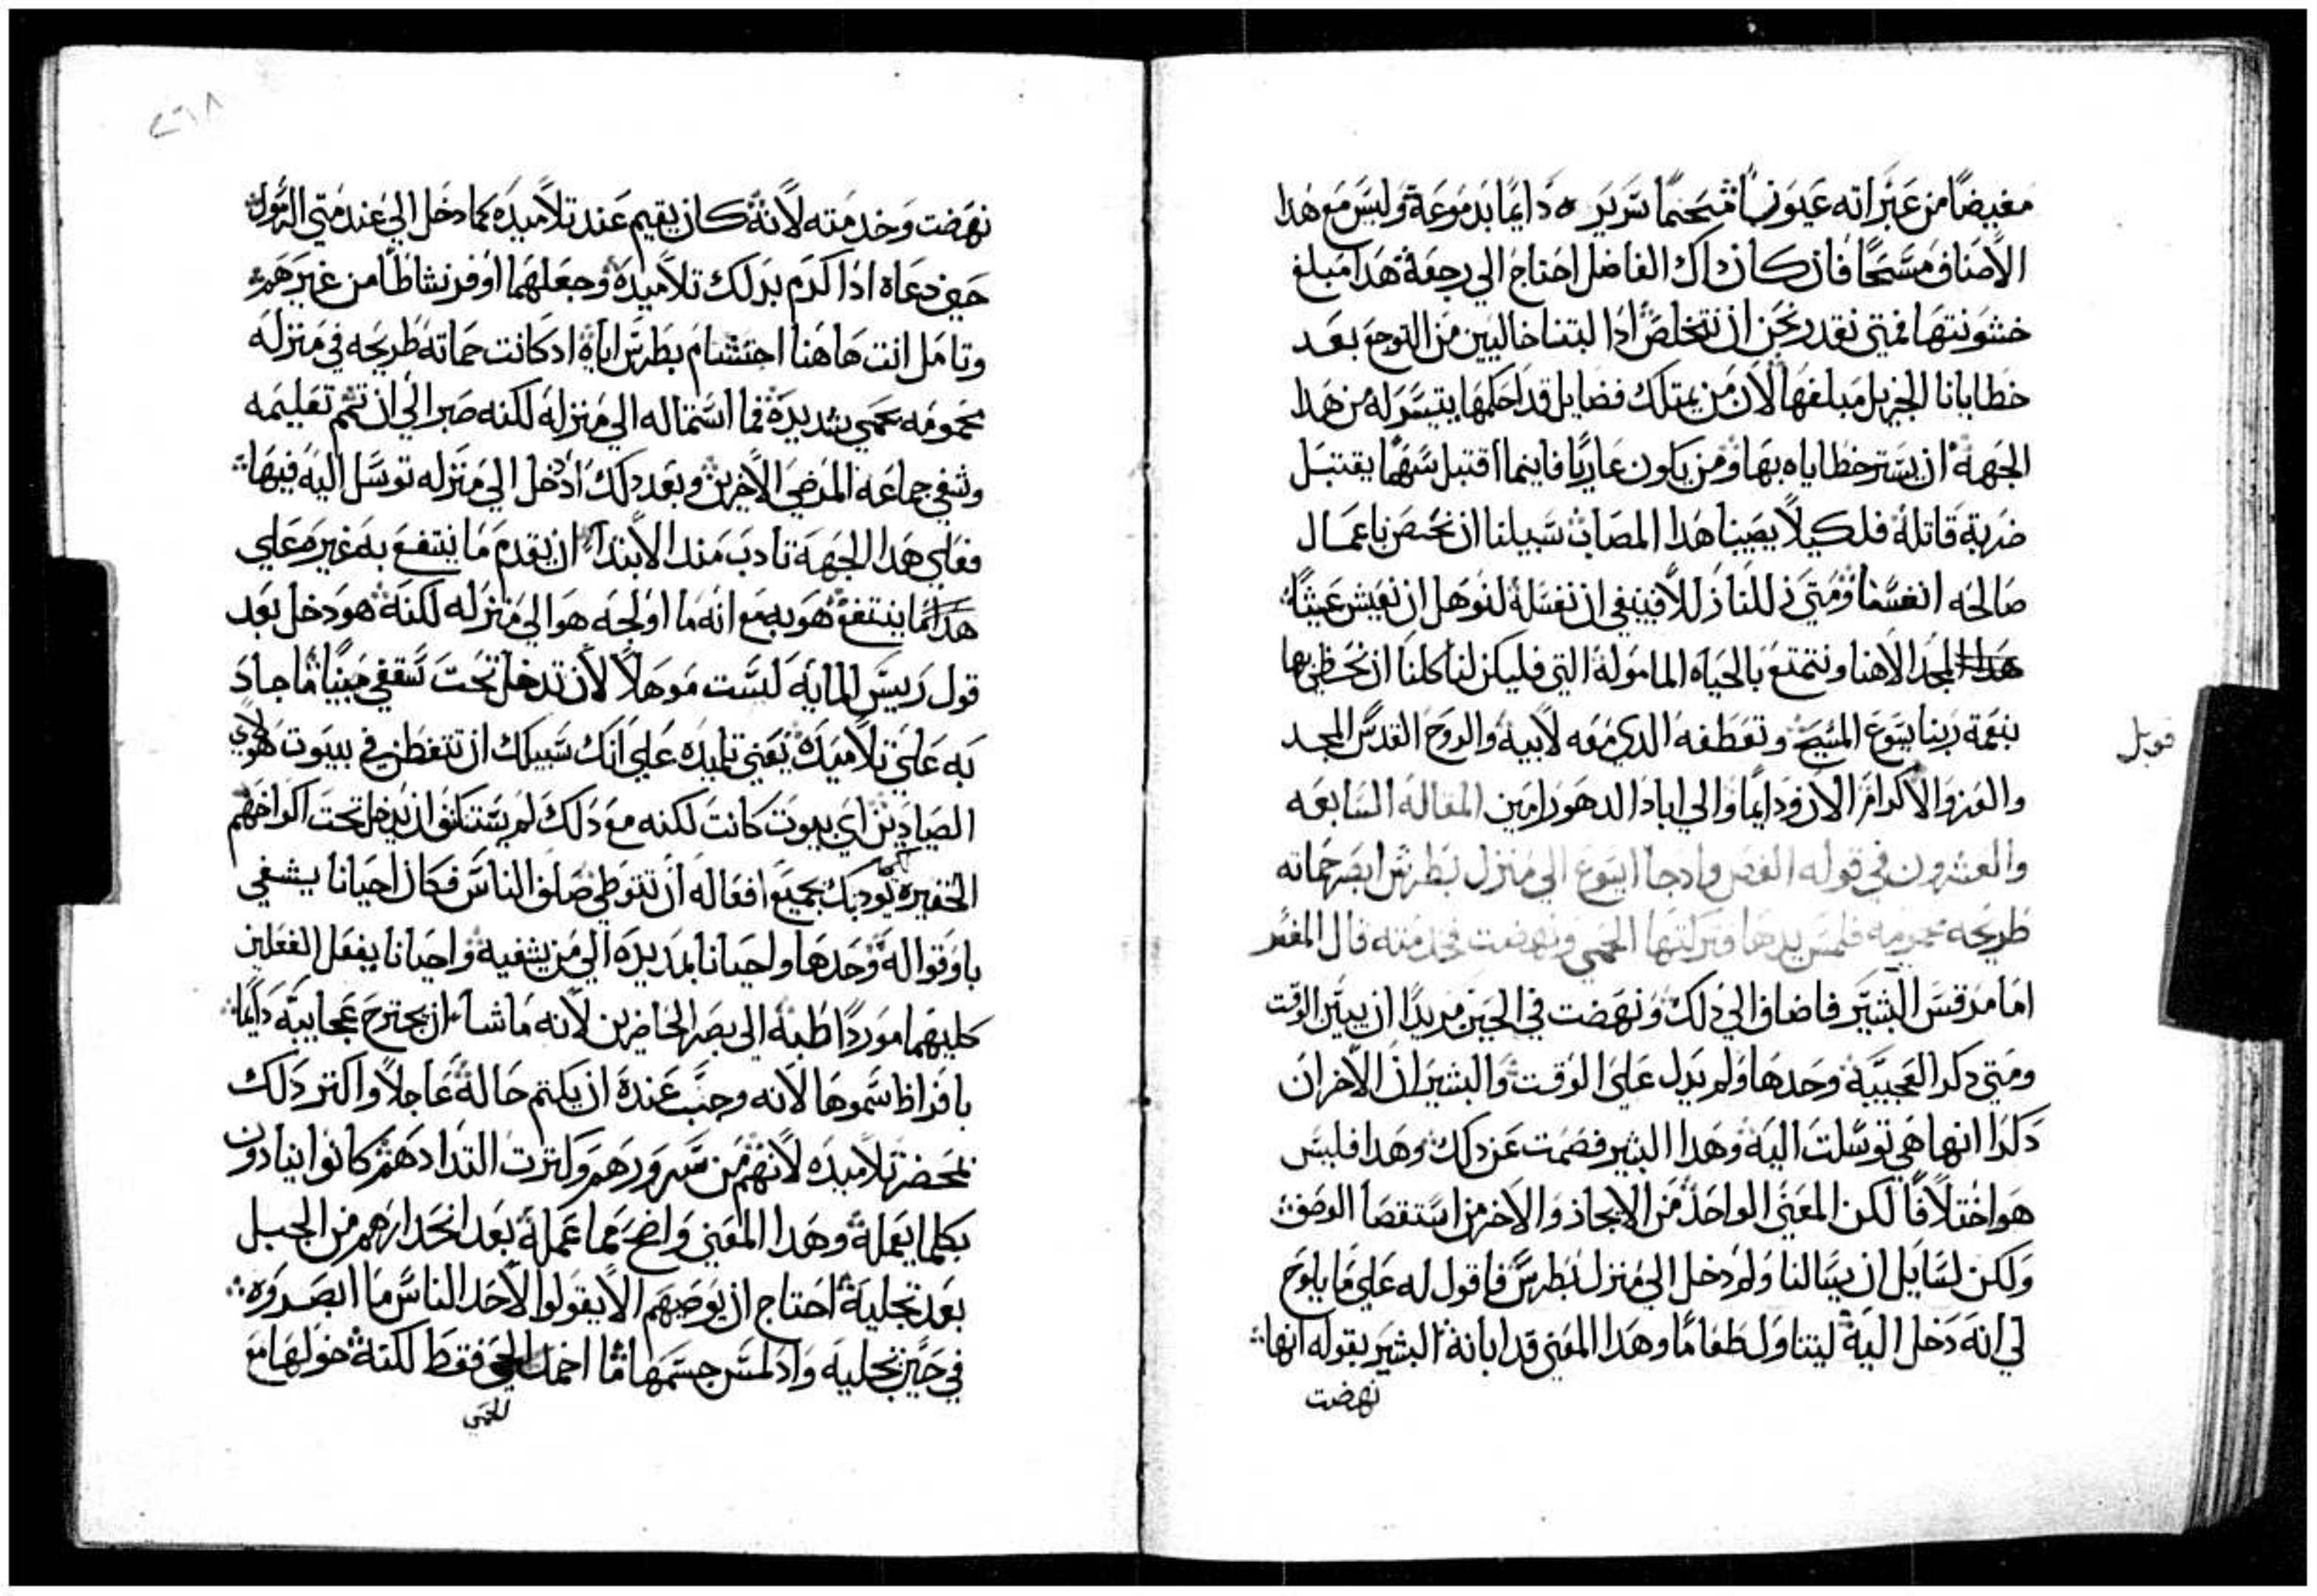 مغيضًا من عبراته عيونًا مسحمًا سريره دايمًا بدموعه وليس مع هدا
الاصناف مسمحًا فان كان داك الفاضل احتاج الي رجعة هدا مبلغ
خشونتها فمتي نقدر نحن ان نتخلص ادا لبتنا خاليين من التوجع بعد
خطايانا الجزيل مبلغها لان من يمتلك فضايل قد احكمها يتيسر له من هدا
الجهة ان يستر خطاياه بها ومن يكون عاريًا فاينما اقتبل سهمًا يقتبل
ضربة قاتلة فلكيلا يصيبنا هدا المصاب سبيلنا ان نخصن باعمال
صالحه انفسنا ومتي زللنا زللا فينبغي ان نغسله لنوهل ان نعيش عيشًا
هدا المجد الاهنا ونتمتع بالحياه المامولة التي فليكن لنا كلنا ان نحظي بها
بنعمة ربنا يسوع المسيح وتعطفه الدي معه لابيه والروح القدس المجد
والعز والاكرام الان ودايمًا والي اباد الدهور امين المقالة السابعه
والعشرون في قوله الفص وادجا ايسوع الي منزل بطرس ابصر حماته
طريحه محمومه فلمس يدها فتركتها الحمي ونهضت فخدمته قال المفسر
اما مرقس البشير فاضاف الي دلك ونهضت في الحين مريدًا ان يبين الوقت
ومتي دكر العجيبة وحدها ولم يدل علي الوقت والبشيران الاخران
دكرا انها هي توسلت اليه وهدا البشير فصمت عن دلك وهدا فليس
هو اختلافًا لكن المعني الواحد من الايجاز والاخر من استقصا الوصف
ولكن لسايل ان يسالنا ولم دخل الي منزل بطرس فاقول له علي ما يلوح
لي انه دخل اليه ليتناول طعامًا وهدا المعني قد ابانه البشير بقوله انها
نهضت
قوبل
٢٦٨
نهضت وخدمته لانه كان يقيم عند تلاميده كما دخل الي عند متي الرسول
حين دعاه ادا كرم بدلك تلاميده وجعلهما اوفر نشاطًا من غيرهم
وتامل انت هاهنا احتشام بطرس اياه ادكانت حماته طريحه في منزله
محمومه بحمي شديدة فما استماله الي منزله لكنه صبر الي ان تتم تعليمه
وشفي جماعة المرضي الاخرين وبعد دلك اد دخل الي منزله توسل اليه فيها
فعلي هدا الجهة تادب مند الابتدا ان يقدم ما ينتفع به غيره علي
هدا ما ينتفع هو به مع انه ما اولجه هو الي منزله لكنه هو دخل بعد
قول رييس المايه لست موهلًا لان تدخل تحت سقفي مبينًا ما جاد
به علي تلاميده يعني تلميده علي انك سبيلك ان تتفطن في بيوت هولاي
الصيادين اي بيوت كانت لكنه مع دلك لم يستنكف ان يدخل تحت اكواخهم
الحقيره يوديك بجميع افعاله ان تتوطي صلف الناس فكان احيانا يشفي
باوقواله وحدها واحيانا بمد يده الي من يشفيه واحيانا يفعل الفعلين
كليهما موردًا طبه الي بصر الحاضرين لانه ما شا ان يجترح عجايبه دايمًا
بافراط سموها لانه وجب عنده ان يكتم حاله عاجلًا واكتر دلك
بمحضر تلاميده لانهم من سرورهم وكترت التدادهم كانوا ينادون
بكلما يعمله وهدا المعني واضح مما عمله بعد انحدارهم من الجبل
بعد تجليه احتاج ان يوصيهم الا يقولوا لاحد الناس ما ابصروه
في حين تجليه واد لمس جسمها ما اخمد الحمي فقط لكنه خولها مع
للحمي